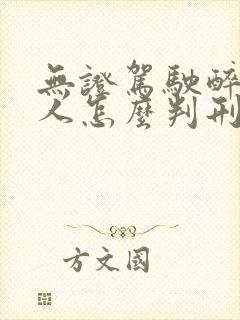 無證駕駛醉
人怎麼判刑
方文國